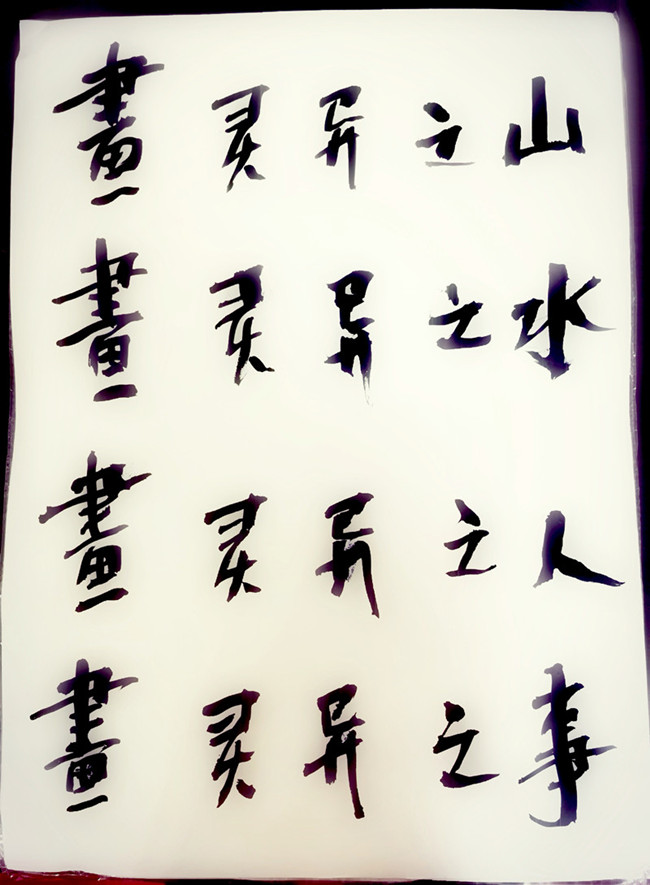 畫灵异之山
畫灵异之水
畫灵异之人
畫灵异之事